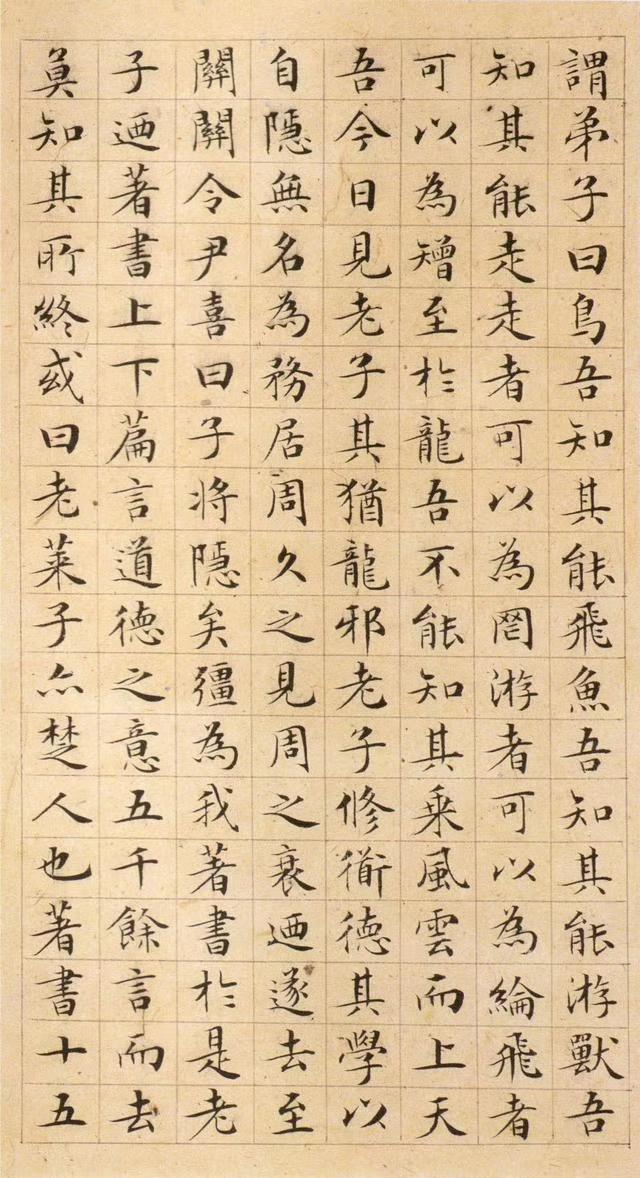 謂弟子曰鳥吾知其能飛魚吾知其能游獸吾
知其能走走者可以為罔游者可以為綸飛者
可以為矰至於龍吾不能知其乘風雲而上天
吾今日見老子其猶龍邪老子修衟德其學以
自隱無名為務居周久之見周之衰迺遂去至
關關令尹喜曰子將隱矣彊為我著書於是老
子迺著書上下篇言道德之意五千餘言而去
莫知其所終或曰老萊子亦楚人也著書十五